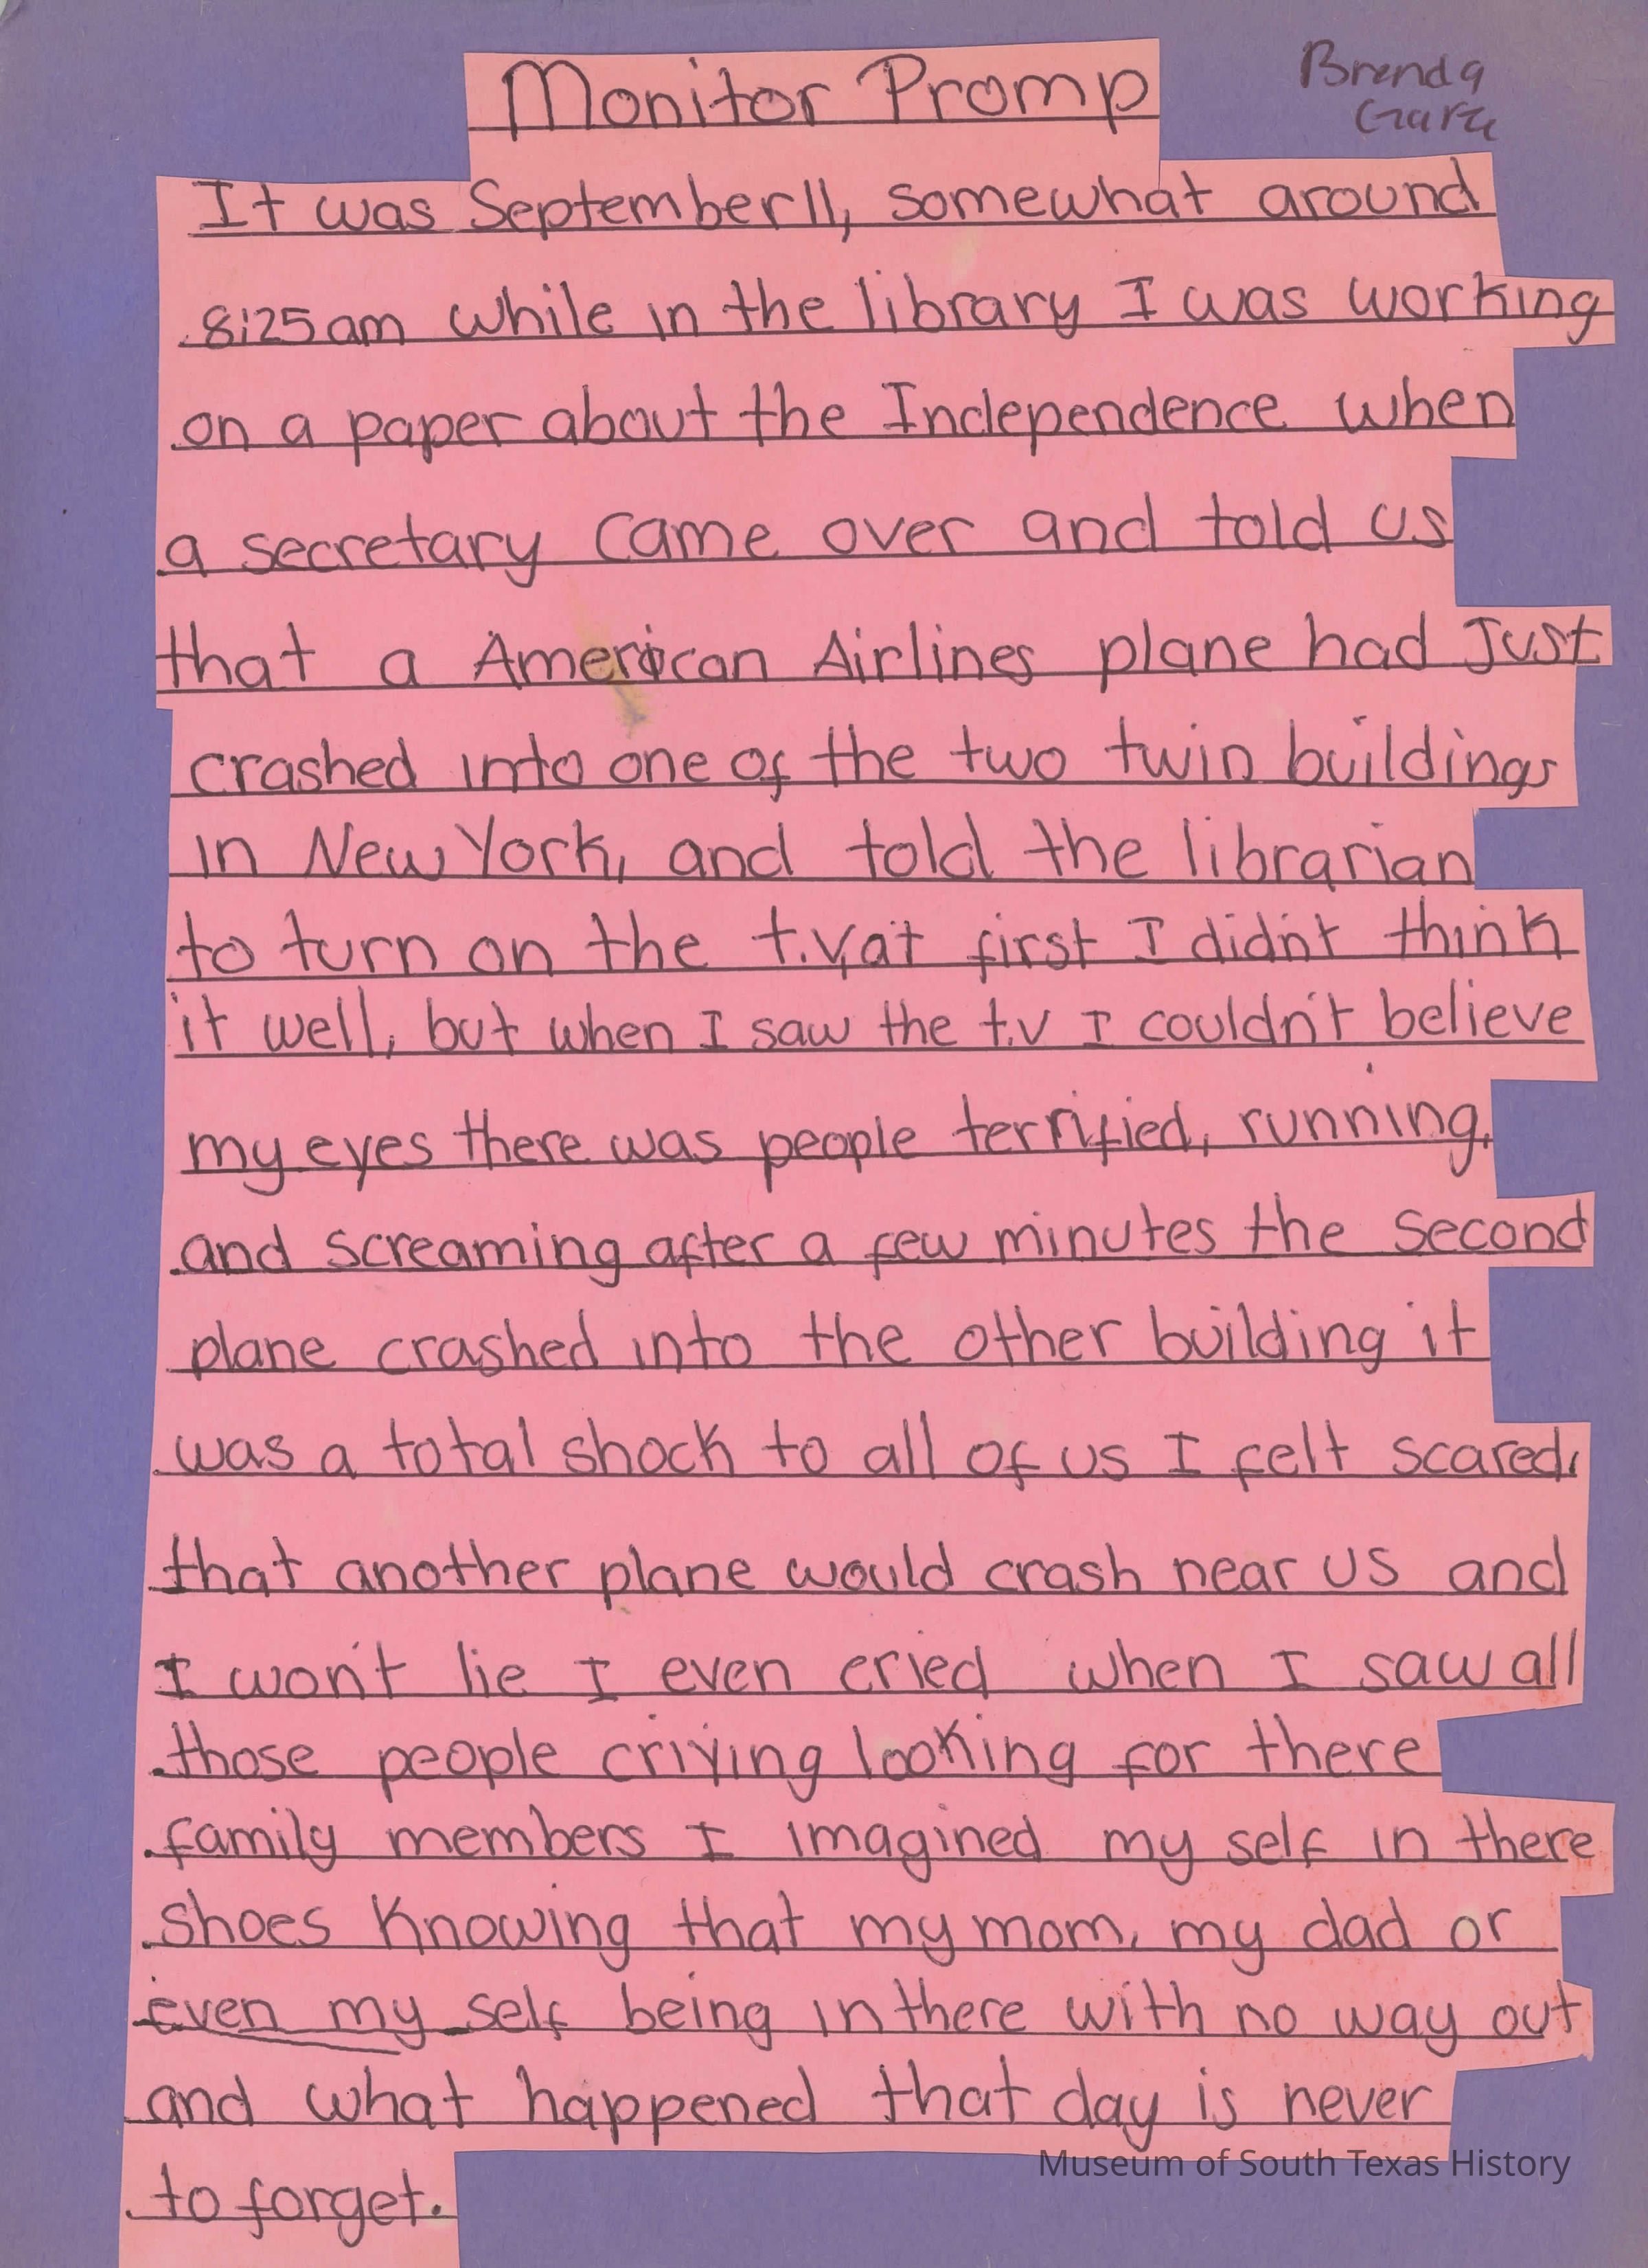 Monitor Promp
Brenda
Garza
It was September 11, somewhat around
8:25am while in the library I was working
on a paper about the Independence when
a secretary came over and told us
that a American Airlines plane had Just
crashed into one of the two twin buildings
in New York, and told the librarian
to turn on the t.v, at first I didn't think
it well, but when I saw the t.v I couldn't believe
my eyes there was people terrified, running,
and screaming after a few minutes the second
plane crashed into the other building it
was a total shock to all of us I felt scared,
that another plane would crash near us and
I won't lie I even cried when I saw all
those people criying looking for there
family members I imagined my self in there
shoes Knowing that my mom, my dad or
even my self being in there with no way out
and what happened that day is never
to forget.
Museum of South Texas History